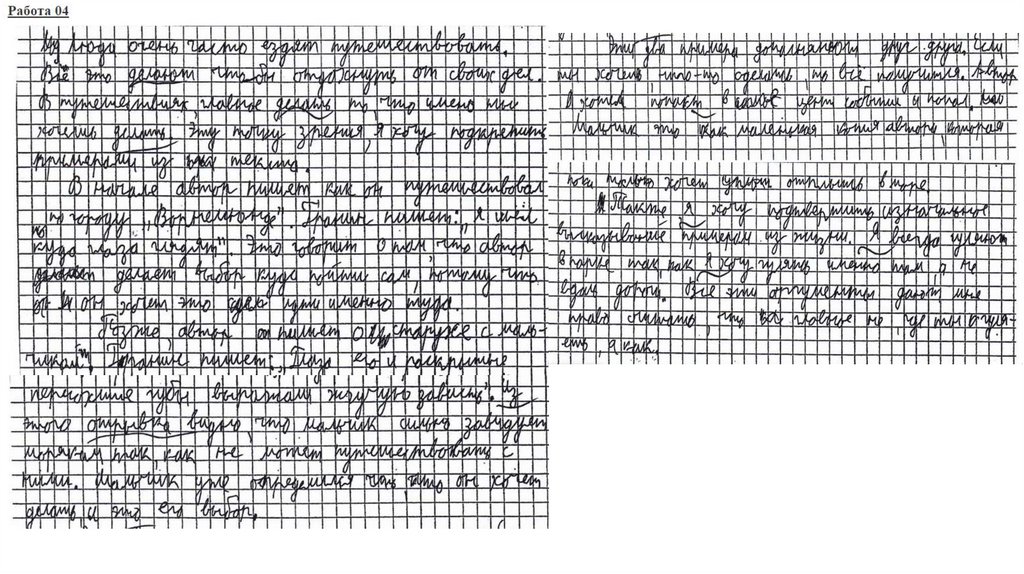 Работа 04
люди очень часто ездят путешествовать.
Всё это делают чтобы отдохнуть от своих дел.
В путешествиях главное делать то, что имено мы
хочешь делать. Эту точку зрения, я хочу подкрепить
примерами из текста.
В начале автор пишет как он путешествовал
по городу „Ворнемюнде". Гранин пишет: „Я шёл
куда глаза глядят". Это говорит о том, что автор
делает выбор куда пойти сам, потому что
он хочет это идти именно туда.
Позже, автор пишет о старухе с маль-
чиком. Гранин пишет: „Глаза его и раскрытые
пересохшие губы выражали жгучую зависть". Из
этого отрывка видно, что мальчик сильно завидует
морякам, так как не может путешествовать с
ними. Мальчик уже определился что он хочет
делать, и это его выбор.
Эти два примера дополняют друг друга. Если
ты хочешь что-то сделать, то всё получится. Автор
хотел попасть в самый цент события и попал.
Мальчик это как маленькая копия автора, которая
пока только хочет отплыть в море.
Также я хочу подтвердить изначальное
высказывание примером из жизни. Я всегда гуляю
в парке так, как я хочу гулять именно там, а не
вдоль дороги. Все эти аргументы дают мне
право считать, что главное не где ты гуля-
ешь, а как.